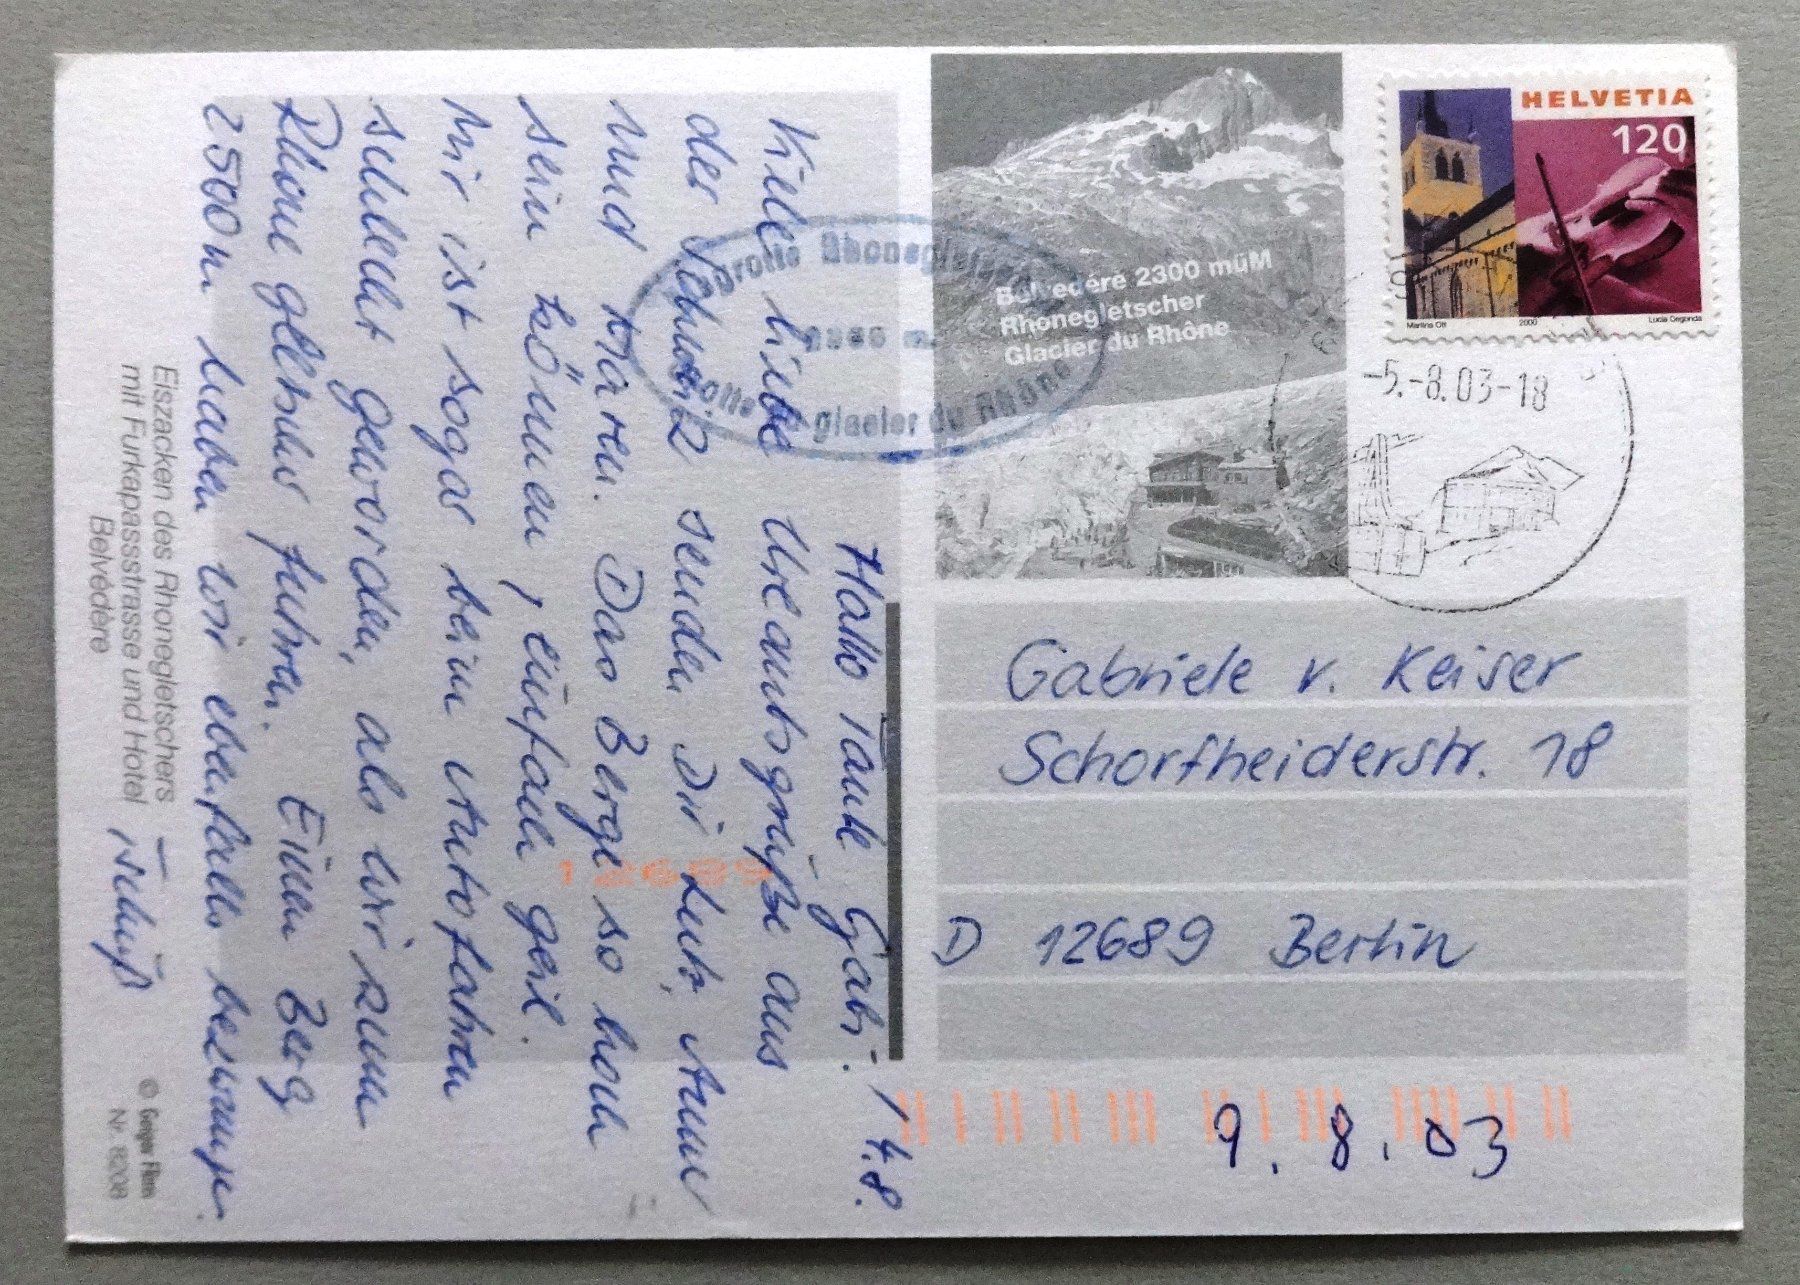 Hallo Tante Gabi! 4.8.
Viele liebe Urlaubsgrüße aus
der Schweiz senden Dir Lutz, Anne
und Maren. Das Berge so hoch
sein können, einfach geil.
Mir ist sogar beim Autofahren
schlecht geworden, als wir zum
Rhonegletscher fuhren. Einen Berg
2500m haben wir ebenfalls bezwungen.
Eiszacken des Rhonegletschers
mit Furkapassstrasse und Hotel
Belvédère
© Geiger Flims
Nr. 8208
Belvedère 2300 müM
Rhonegletscher
Glacier du Rhône
Rhonegletscher
glacier du Rhône
HELVETIA
120
Martina Ott 2000 Lucia Degonda
-5.-8.03-18
Gabriele v. Keiser
Schorfheiderstr. 18
D 12689 Berlin
12689
9.8.03